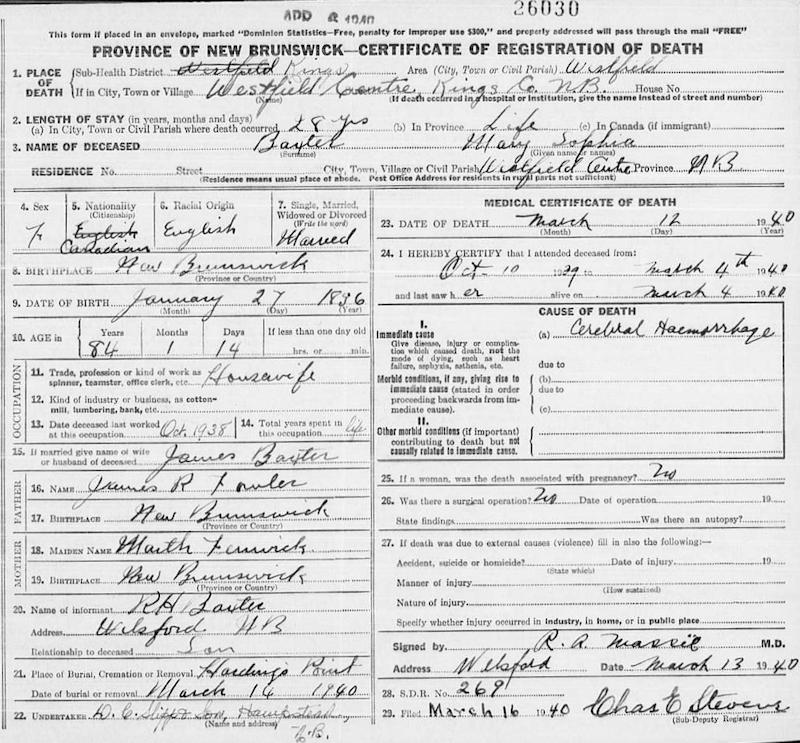 APR 8 1940
26030
This form if placed in an envelope, marked "Dominion Statistics—Free, penalty for improper use $300," and properly addressed will pass through the mail "FREE"
PROVINCE OF NEW BRUNSWICK—CERTIFICATE OF REGISTRATION OF DEATH
1. PLACE OF DEATH {Sub-Health District Westfield Kings Area (City, Town or Civil Parish) Westfield
If in City, Town or Village Westfield Centre, Kings Co. N.B. House No.
(Name) (If death occurred in a hospital or institution, give the name instead of street and number)
2. LENGTH OF STAY (in years, months and days)
(a) In City, Town or Civil Parish where death occurred 28 yrs (b) In Province Life (c) In Canada (if immigrant)
3. NAME OF DECEASED Baxter Mary Sophia
(Surname) (Given name or names)
RESIDENCE No. Street City, Town, Village or Civil Parish Westfield Centre Province N B
(Residence means usual place of abode. Post Office Address for residents in rural parts not sufficient)
4. Sex F
5. Nationality (Citizenship) English Canadian
6. Racial Origin English
7. Single, Married, Widowed or Divorced (Write the word) Married
8. BIRTHPLACE New Brunswick
(Province or Country)
9. DATE OF BIRTH January 27 1836
(Month) (Day) (Year)
10. AGE in Years Months Days If less than one day old
84 1 14 hrs. or min.
OCCUPATION
11. Trade, profession or kind of work as spinner, teamster, office clerk, etc. Housewife
12. Kind of industry or business, as cotton-mill, lumbering, bank, etc.
13. Date deceased last worked at this occupation Oct. 1938
14. Total years spent in this occupation life
15. If married give name of wife or husband of deceased James Baxter
FATHER
16. NAME James R Fowler
17. BIRTHPLACE New Brunswick
(Province or Country)
MOTHER
18. MAIDEN NAME Marth Fenwick
19. BIRTHPLACE New Brunswick
(Province or Country)
20. Name of informant R H Baxter
Address Welsford N B
Relationship to deceased Son
21. Place of Burial, Cremation or Removal Hardings Point
Date of burial or removal March 14 1940
22. UNDERTAKER D. C. Slipp & Son, Hampstead
(Name and address)
N.B.
MEDICAL CERTIFICATE OF DEATH
23. DATE OF DEATH March 12 1940
(Month) (Day) (Year)
24. I HEREBY CERTIFY that I attended deceased from:
Oct 10 1939 to March 4th 1940
and last saw h er alive on March 4 1940
CAUSE OF DEATH
I.
Immediate cause
Give disease, injury or complication which caused death, not the mode of dying, such as heart failure, asphyxia, asthenia, etc.
(a) Cerebral Haemorrhage
due to
Morbid conditions, if any, giving rise to immediate cause (stated in order proceeding backwards from immediate cause).
(b)
due to
(c)
II.
Other morbid conditions (if important) contributing to death but not causally related to immediate cause.
25. If a woman, was the death associated with pregnancy? No
26. Was there a surgical operation? No Date of operation 19
State findings Was there an autopsy?
27. If death was due to external causes (violence) fill in also the following:—
Accident, suicide or homicide? Date of injury 19
(State which)
Manner of injury
(How sustained)
Nature of injury
Specify whether injury occurred in industry, in home, or in public place
Signed by R. A. Massie M.D.
Address Welsford Date March 13 1940
28. S.D.R. No. 269
29. Filed March 16 1940 Chas E Stevens
(Sub-Deputy Registrar)